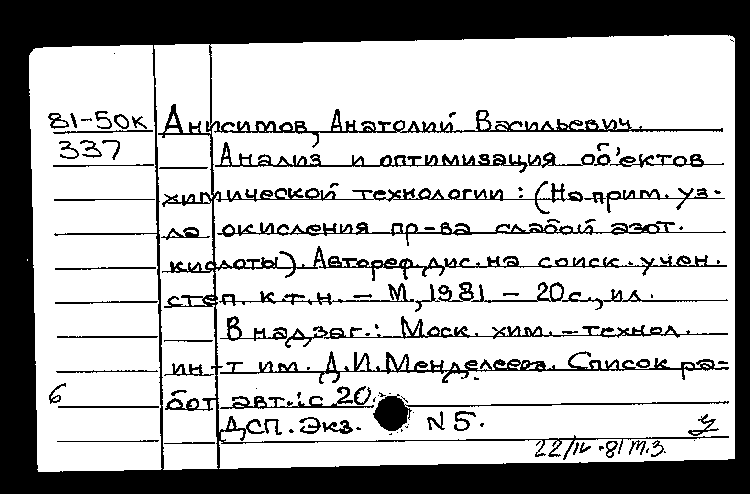 81-50к Анисимов, Анатолий Васильевич.
337 Анализ и оптимизация об'ектов
химической технологии : (На прим. уз-
ла окисления пр-ва слабой азот.
кислоты). Автореф. дис. на соиск. учен.
степ. к.т.н. – М., 1981. – 20 с., ил.
В надзаг.: Моск. хим.-технол.
ин-т им. Д.И.Менделеева. Список ра-
6 бот авт.: с. 20.
ДСП. Экз. N 5.
22/IV-81 т.з.